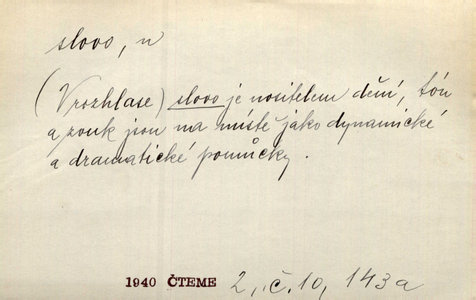 slovo, n
(V rozhlase) slovo je nositelem dění, tón
a zvuk jsou na místě jako dynamické
a dramatické pomůcky.
1940 ČTEME 2, č. 10, 143a